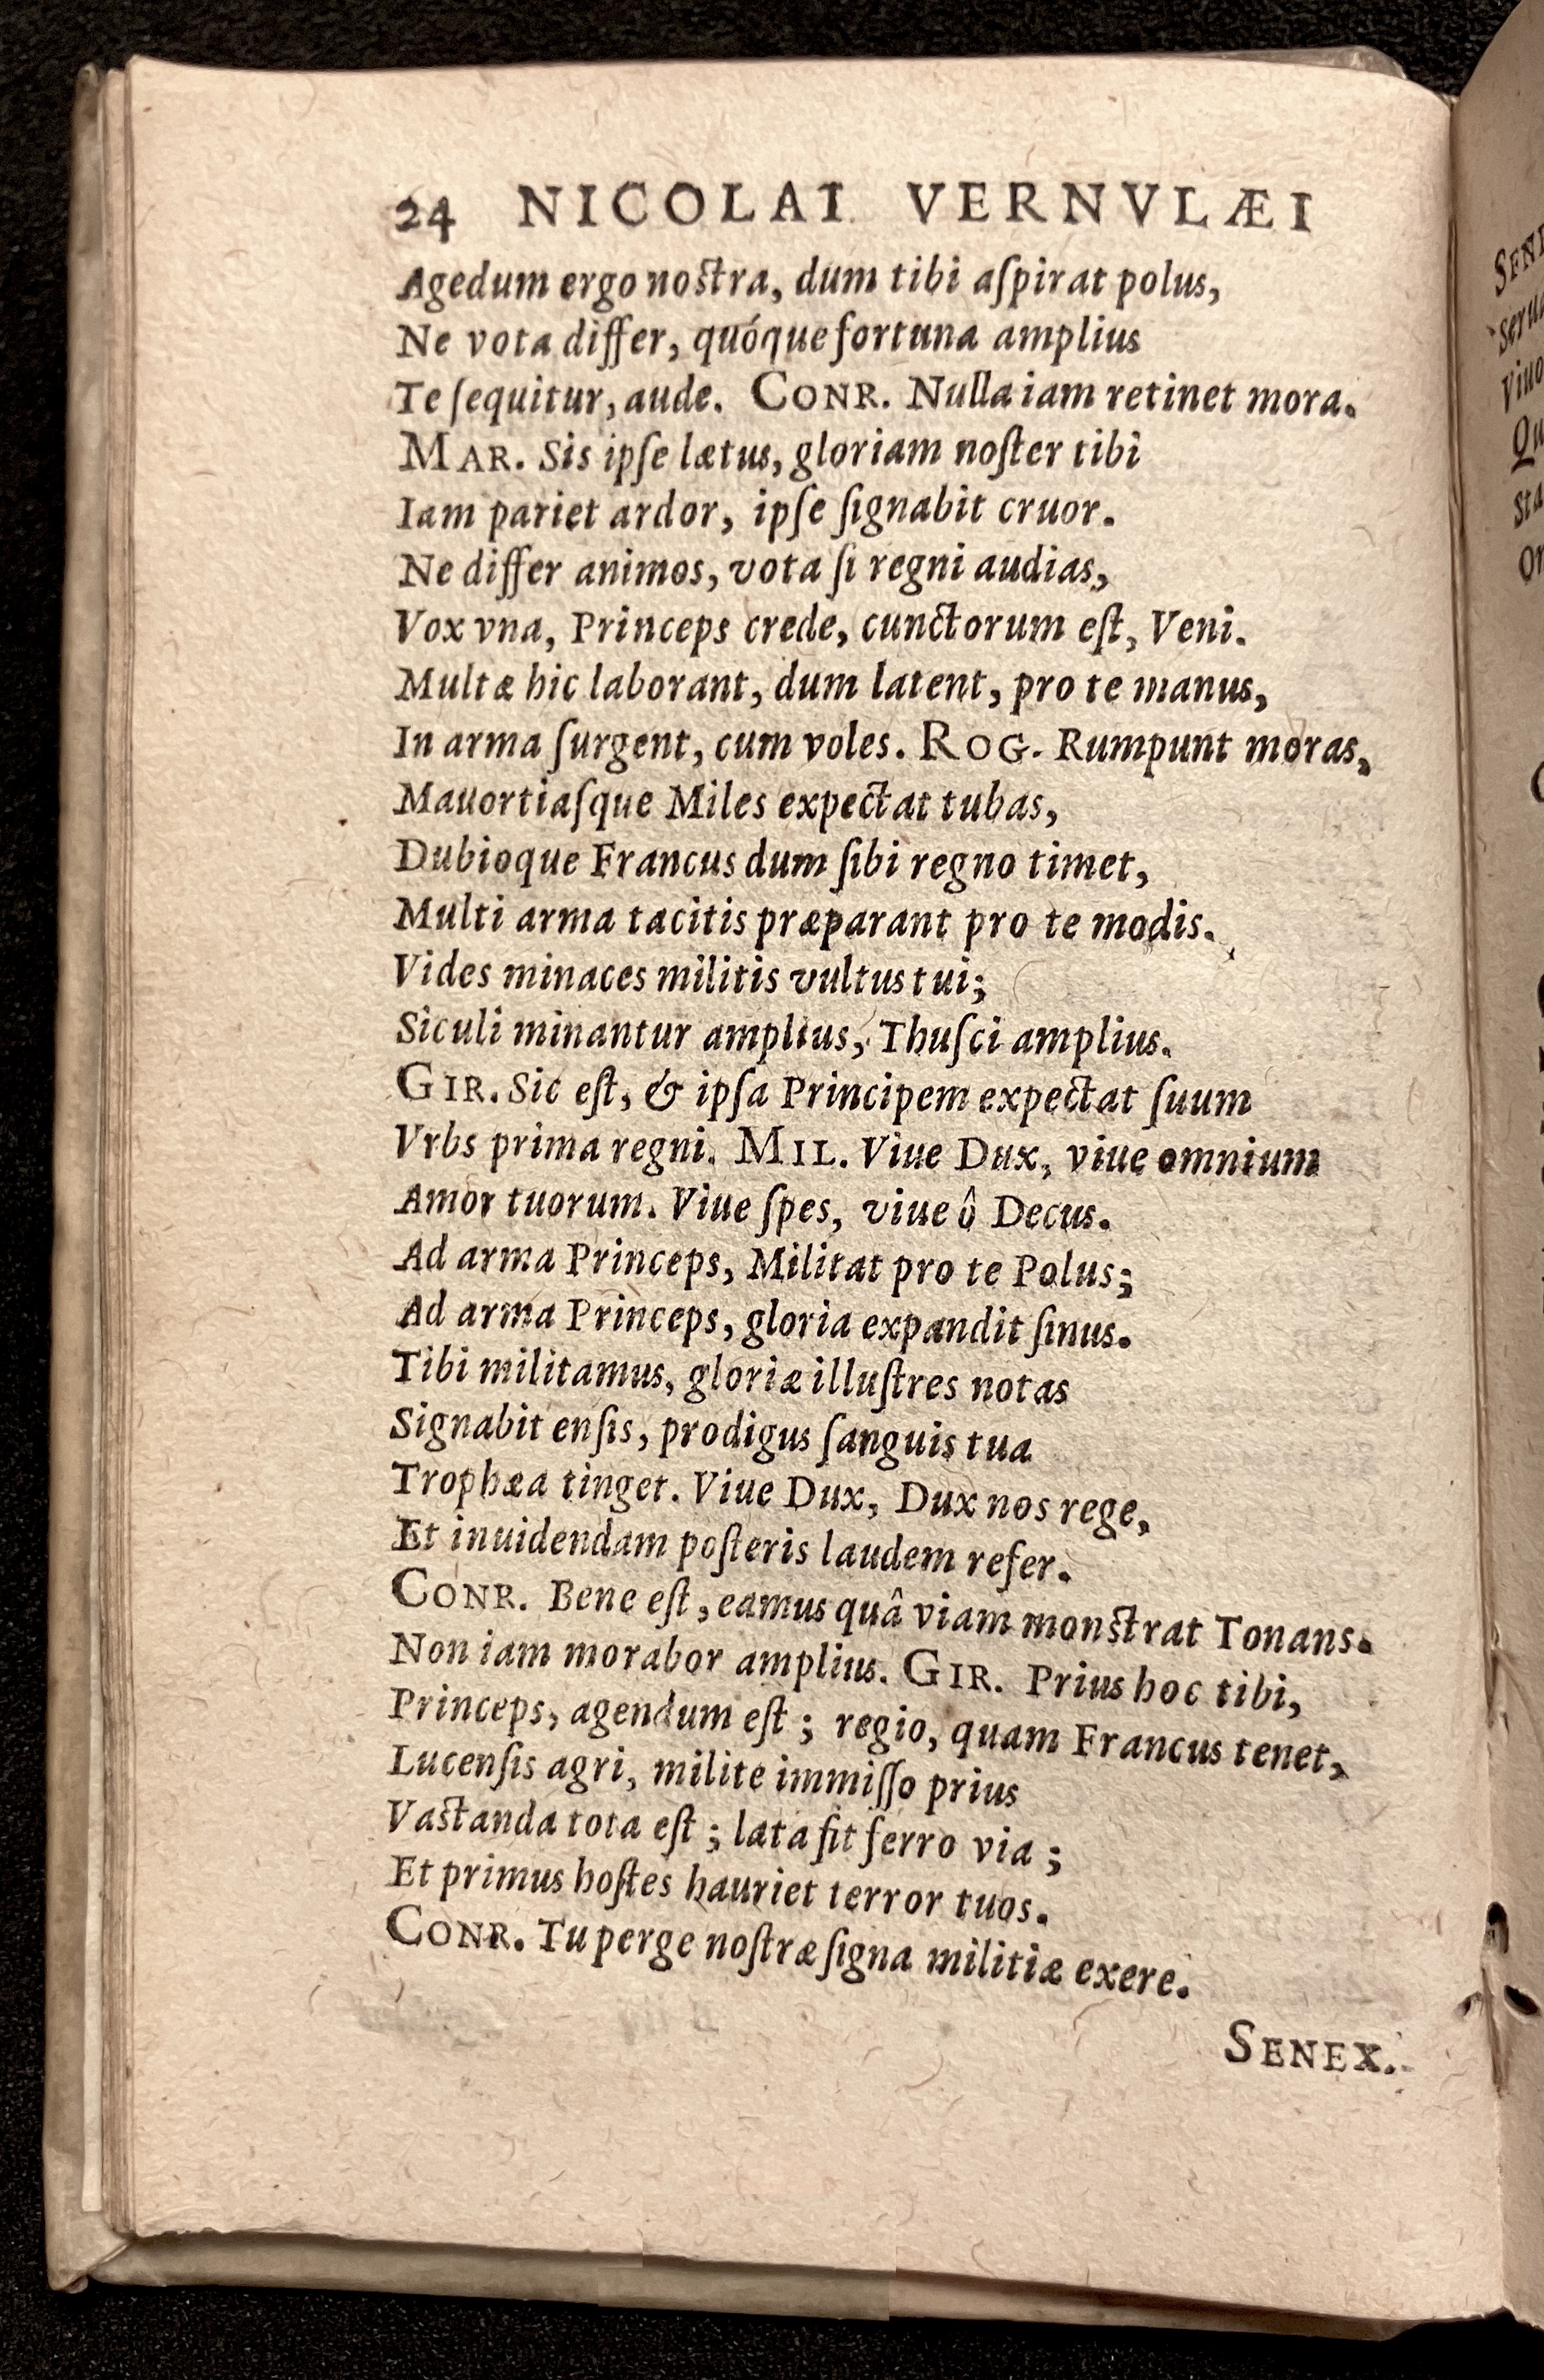 24 NICOLAI VERNVLÆI
Agedum ergo noſtra, dum tibi aſpirat polus,
Ne vota differ, quóque fortuna amplius
Te ſequitur, aude. CONR. Nulla iam retinet mora.
MAR. Sis ipſe lætus, gloriam noſter tibi
Iam pariet ardor, ipſe ſignabit cruor.
Ne differ animos, vota ſi regni audias,
Vox vna, Princeps crede, cunctorum eſt, Veni.
Multæ hic laborant, dum latent, pro te manus,
In arma ſurgent, cum voles. ROG. Rumpunt moras,
Mauortiaſque Miles expectat tubas,
Dubioque Francus dum ſibi regno timet,
Multi arma tacitis præparant pro te modis.
Vides minaces militis vultus tui;
Siculi minantur amplius, Thuſci amplius.
GIR. Sic eſt, & ipſa Principem expectat ſuum
Vrbs prima regni. MIL. Viue Dux, viue omnium
Amor tuorum. Viue ſpes, viue ô Decus.
Ad arma Princeps, Militat pro te Polus;
Ad arma Princeps, gloria expandit ſinus.
Tibi militamus, gloriæ illuſtres notas
Signabit enſis, prodigus ſanguis tua
Trophæa tinget. Viue Dux, Dux nos rege,
Et inuidendam poſteris laudem refer.
CONR. Bene eſt, eamus quâ viam monſtrat Tonans.
Non iam morabor amplius. GIR. Prius hoc tibi,
Princeps, agendum eſt; regio, quam Francus tenet,
Lucenſis agri, milite immiſſo prius
Vaſtanda tota eſt; lata fit ferro via;
Et primus hoſtes hauriet terror tuos.
CONR. Tu perge noſtræ ſigna militiæ exere.
SENEX.